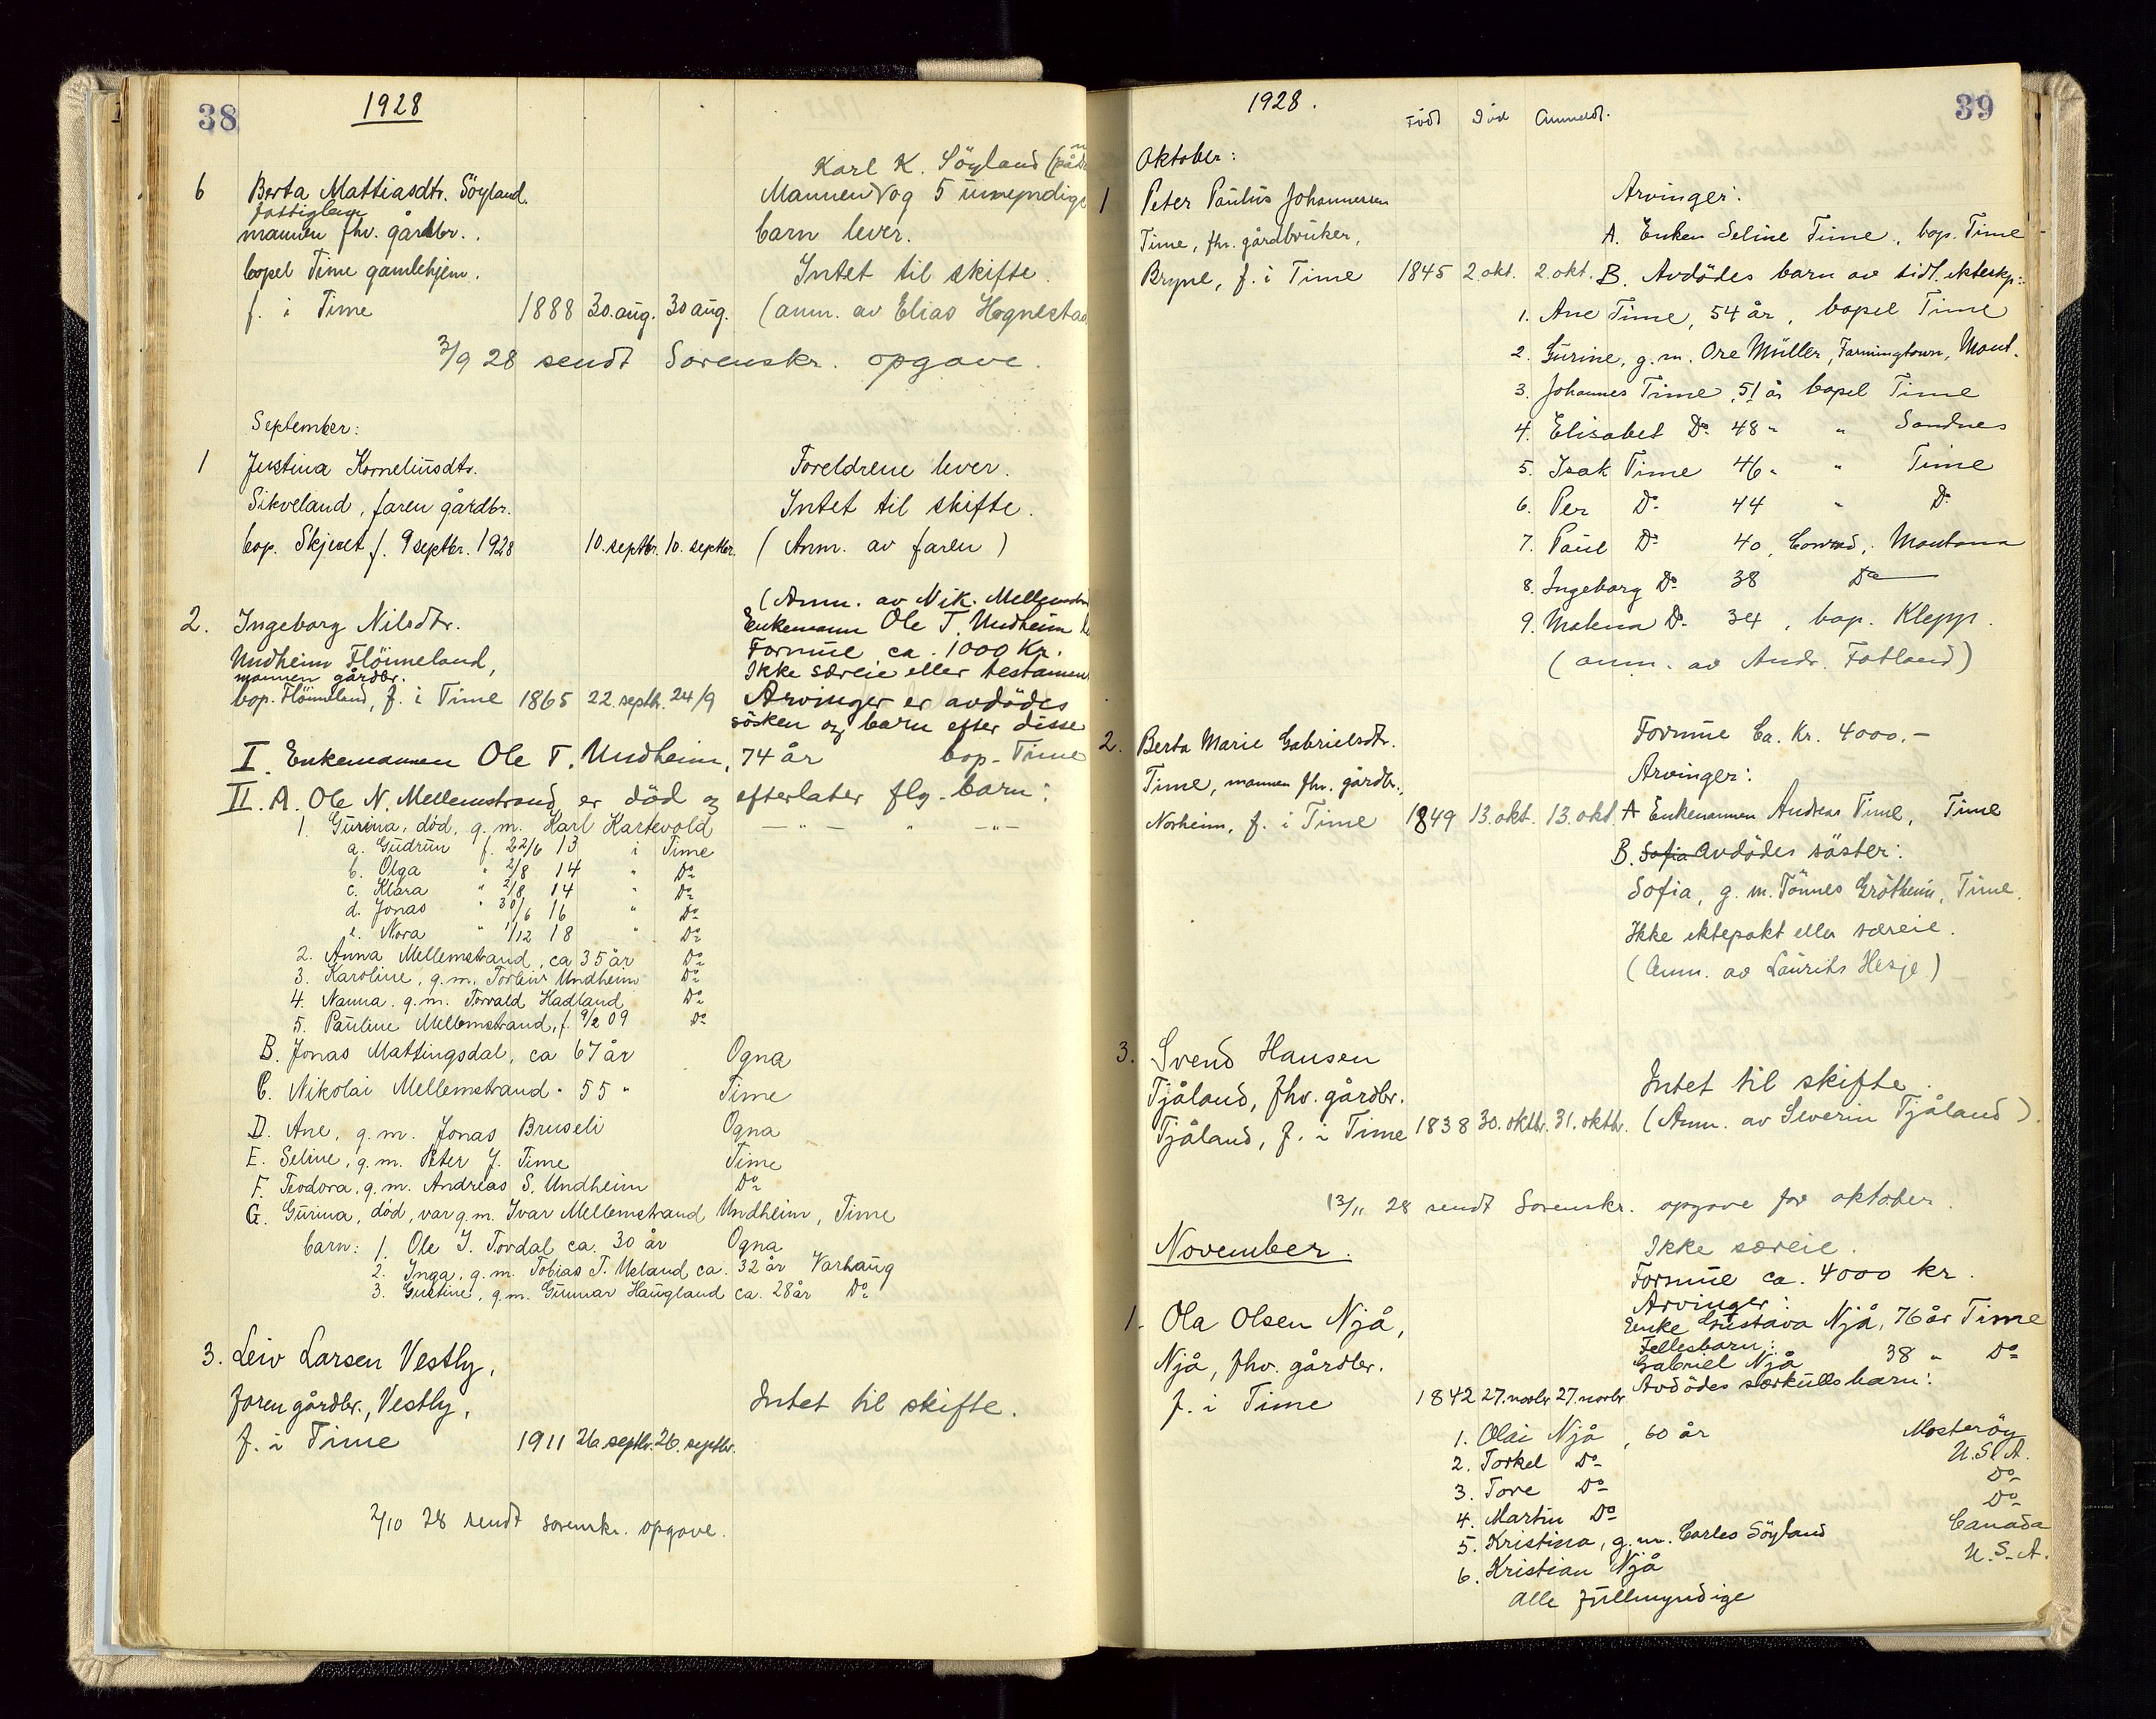 38
1928
6 Berta Mattiasdtr. Söyland.
fattiglem
mannen fhv. gårdbr.
bopel Time gamlehjem.
f. i Time 1888 30. aug. 30 aug.
Karl K. Söyland
Mannen og 5 umyndige
barn lever.
Intet til skifte.
(anm. av Elias Hognestad
3/9 28 sendt Sorenskr. opgave.
September:
1 Justina Kornelinsdtr.
Sikveland, faren gårdbr.
bop. Skjevet f. 9 septbr. 1928 10. septbr. 10. septbr.
Foreldrene lever.
Intet til skifte.
(Anm. av faren)
2. Ingeborg Nilsdtr.
Undheim Flöimeland,
mannen gårdbr.
bop. Flöimeland, f. i Time 1865 22. septbr. 24/9
(Anm. av Nik. Mellemstrand
Enkemann Ole T. Undheim
Formue ca. 1000 Kr.
Ikke særeie eller testament
Arvinger er avdödes
sösken og barn efter disse
I. Enkemannen Ole T. Undheim, 74 år bop. Time
II. A. Ole N. Mellemstrand er död og efterlater flg. barn:
1. Gurina, död, g.m. Karl Kartevold — " — " — " —
a. Gudrun f. 22/6 13 i Time
b. Olga " 2/8 14 " Do
c. Klara " 2/8 14 " Do
d. Jonas " 30/6 16 " Do
e. Nora " 1/12 18 " Do
2. Anna Mellemstrand, ca 35 år Do
3. Karoline, g.m. Torleiv Undheim Do
4. Nanna, g.m. Torvald Hadland Do
5. Pauline Mellemstrand, f. 9/2 09 Do
B. Jonas Mattingsdal, ca 67 år Ogna
C. Nikolai Mellemstrand " 55 " Time
D. Ane, g.m. Jonas Bruseli Ogna
E. Seline, g.m. Peter J. Time Time
F. Teodora, g.m. Andreas S. Undheim Do
G. Gurina, död, var g.m. Ivar Mellemstrand Undheim, Time
barn: 1. Ole I. Tordal ca. 30 år Ogna
2. Inga, g.m. Tobias T. Ueland ca. 32 år Varhaug
3. Gustine, g.m. Gunnar Haugland ca. 28 år Do
3. Leiv Larsen Vestly,
faren gårdbr., Vestly,
f. i Time 1911 26 septbr. 26. septbr.
Intet til skifte.
2/10 28 sendt sorenskr. opgave.
39
1928.
Född Död Anmeldt.
Oktober:
1 Peter Paulus Johannessen
Time, fhv. gårdbruker,
Bryne, f. i Time 1845 2. okt. 2. okt.
Arvinger:
A. Enken Seline Time, bop. Time
B. Avdödes barn av tidl. ekteskp:
1. Ane Time, 54 år, bopel Time
2. Gurine, g.m. Ore Müller, Farmingtown, Mont.
3. Johannes Time, 51 år bopel Time
4. Elisabet Do 48 " " Sandnes
5. Isak Time 46 " " Time
6. Per Do 44 " Do
7. Paul Do 40, Conrad, Montana
8. Ingeborg Do 38 Do
9. Malena Do 34, bop. Klepp.
(anm. av Andr. Fotland)
2. Berta Marie Gabrielsdtr.
Time, mannen fhv. gårdbr.,
Norheim, f. i Time 1849 13. okt. 13. okt.
Formue Ca. Kr. 4000.-
Arvinger:
A Enkemannen Andreas Time, Time
B. Sofia Avdödes söster:
Sofia, g.m. Tönnes Grötheim, Time.
Ikke ektepakt eller særeie.
(Anm. av Laurits Hesje)
3. Svend Hansen
Tjåland, fhv. gårdbr.
Tjåland, f. i Time 1838 30. oktbr. 31. oktbr.
Intet til skifte.
(Anm. av Severin Tjåland).
13/11 28 sendt Sorenskr. opgave for oktober.
November.
1. Ola Olsen Njå,
Njå, fhv. gårdbr.
f. i Time 1842 27. novbr 27. novbr
Ikke særeie.
Formue ca. 4000 kr.
Arvinger:
Enke Gustava Njå, 76 år Time
Fellesbarn:
Gabriel Njå 38 " Do
Avdödes særkullsbarn:
1. Olai Njå, 60 år Mosteröy
2. Torkel Do U.S.A.
3. Tore Do Do
4. Martin Do Do
5. Kristina, g.m. Carles Söyland Canada
6. Kristian Njå U.S.A.
Alle fullmyndige